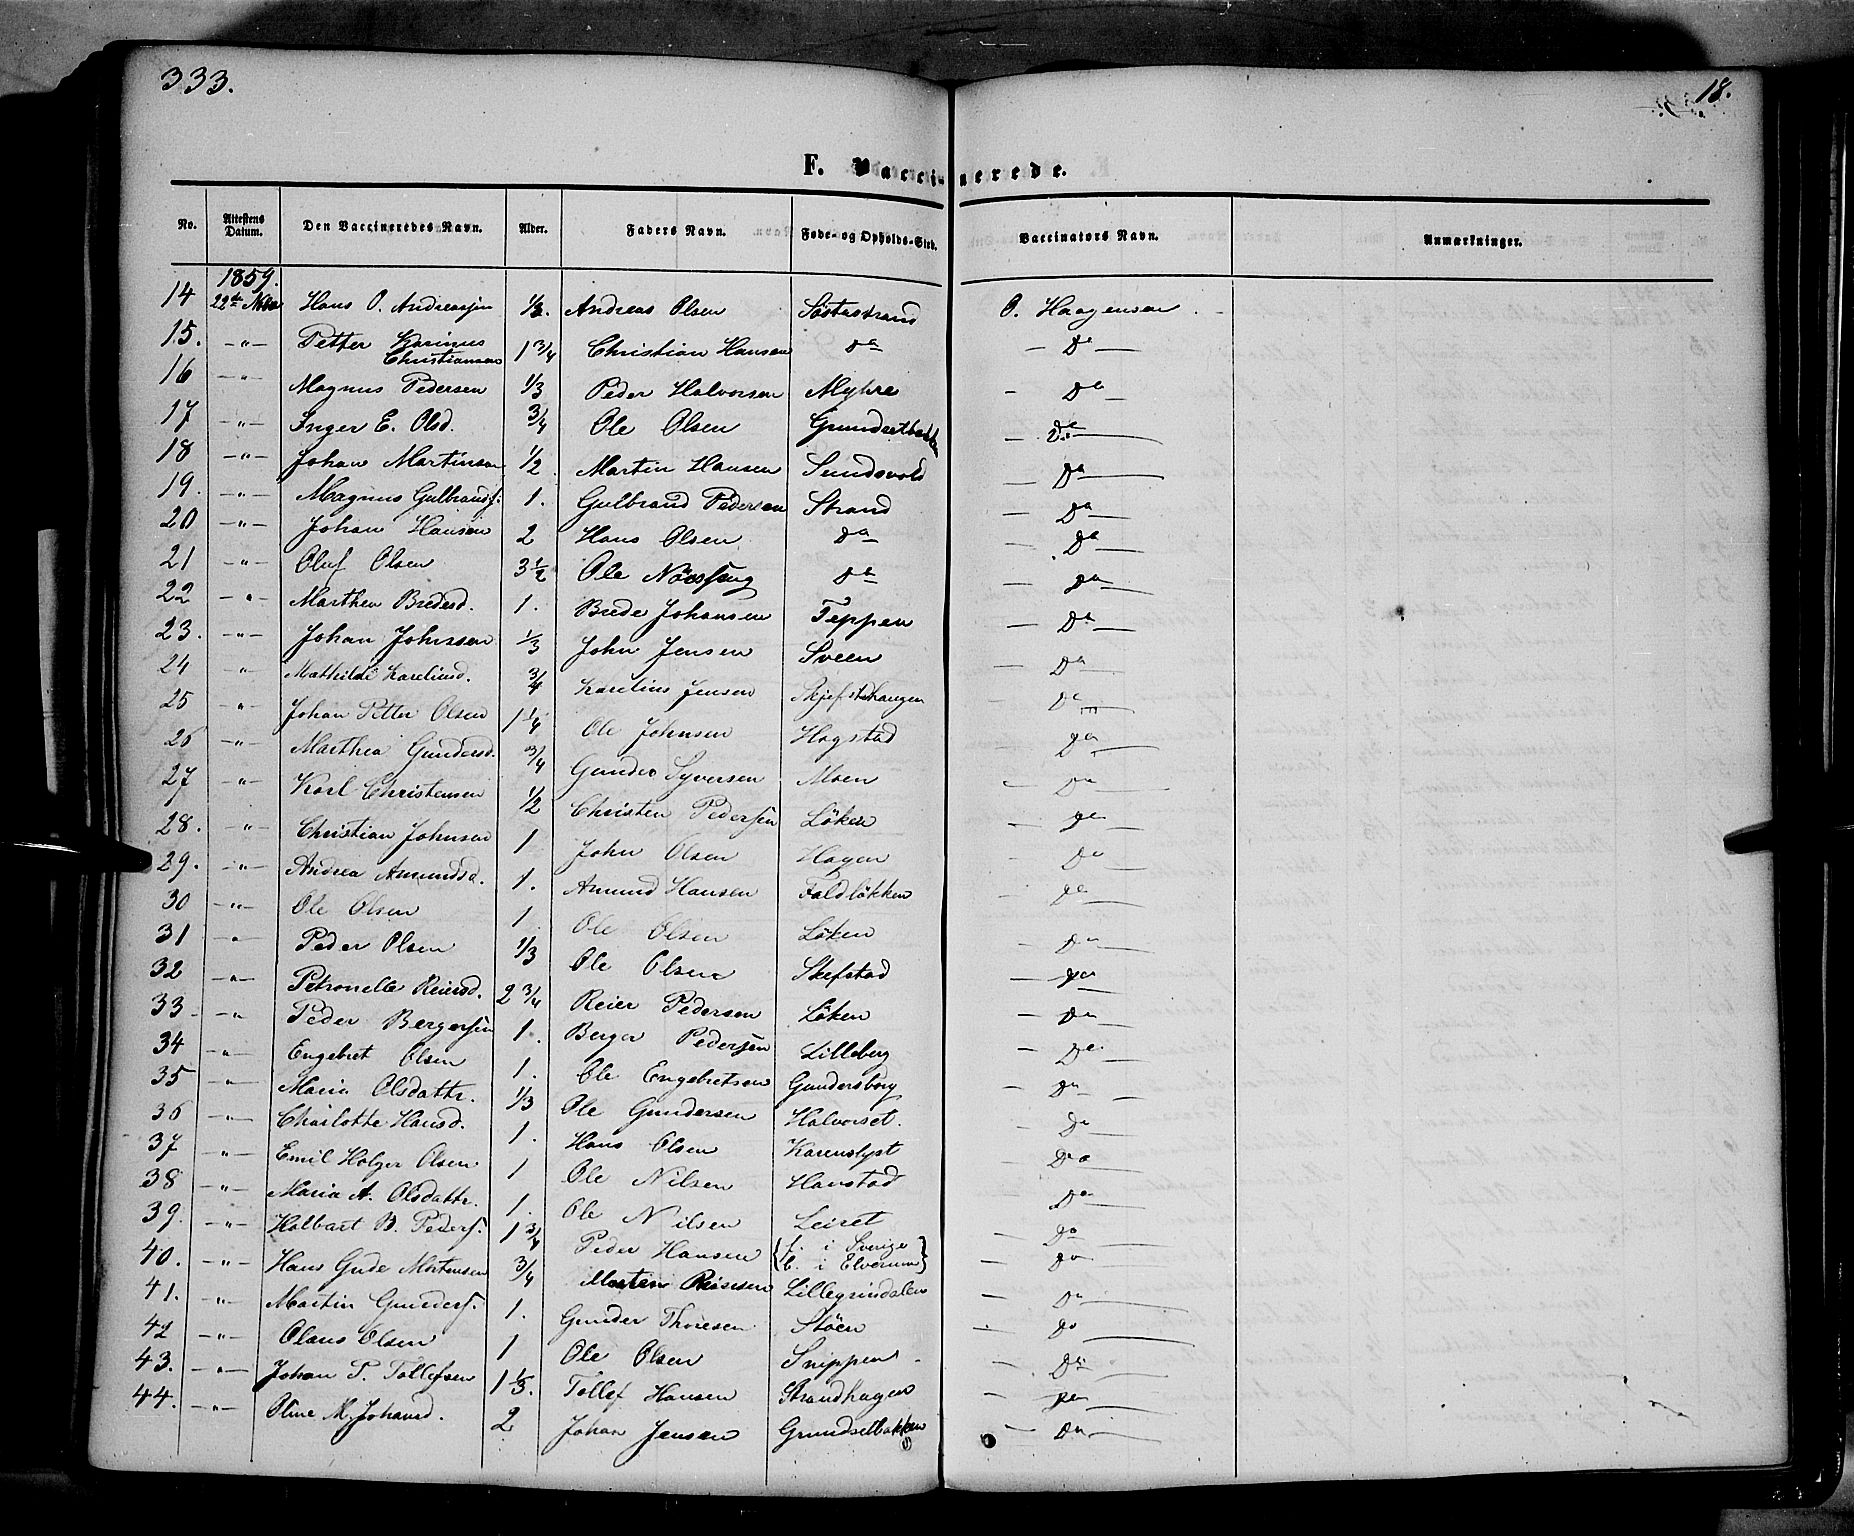 333.
18.
F. Vaccinerede.
No. Attestens Datum. Den Vaccineredes Navn. Alder. Faders Navn. Føde- og Opholds-Sted. Vaccinators Navn. Anmærkninger.
1859.
14 22de Hans O. Andreassen 1/2. Andreas Olsen Söstustrand O. Haagensen
15. -"- Petter Karinus Christiansen 1 3/4 Christian Hansen do - Do -
16 -"- Magnus Pedersen 1/3 Peder Halvorsen Myhre - Do -
17 -"- Inger E. Olsd. 3/4 Ole Olsen Grundsetbakken - Do -
18 -"- Johan Martinsen 1/2 Martin Hansen Sundsvold - Do -
19. -"- Magnus Gulbrands. 1. Gulbrand Pedersen Strand - Do -
20 -"- Johan Hansen 2 Hans Olsen do - Do -
21 -"- Oluf Olsen 3 1/2 Ole do - Do -
22 -"- Marthea Bredesd. 1. Brede Johansen Teppen - Do -
23. -"- Johan Johnssen 1/3 John Jensen Sveen - Do -
24 -"- Mathilde Kareliusd. 3/4 Karelius Jensen Skjefstdhaugen - Do -
25 -"- Johan Petter Olsen 1 1/4 Ole Johnsen Hagstad - Do -
26 -"- Marthea Gundersd. 3/4 Gunder Syversen Moen - Do -
27 -"- Karl Christensen 1/2 Christen Pedersen Löken - Do -
28. -"- Christian Johnsen 1 John Olsen Hagen - Do -
29. -"- Andrea Amundsd. 1. Amund Hansen Faldlökken - Do -
30 -"- Ole Olsen 1 Ole Olsen Löken - Do -
31 -"- Peder Olsen 1/3 Ole Olsen Skefstad - Do -
32 -"- Petronelle Reiersd. 2 3/4 Reier Pedersen Löken - Do -
33 -"- Peder Bergersen 1. Berger Pedersen Lilleberg - Do -
34 -"- Engebret Olsen 1. Ole Engebretsen Gundersborg - Do -
35 -"- Maria Olsdattr. 1/3 Ole Gundersen Halvorset. - Do -
36 -"- Charlotte Hansd. 1. Hans Olsen Karenslyst - Do -
37 -"- Emil Holger Olsen 1 Ole Nilsen Hanstad - Do -
38 -"- Maria A. Olsdattr. 1. Ole Nilsen Leiret - Do -
39. -"- Halbart B. Peders. 1 3/4 Peder Hansen {f. i Sverige b. i Elverum} - Do -
40. -"- Hans Gude Mortensen 3/4 Morten Lillegrindalen - Do -
41. -"- Martin Gunders. 1. Gunder Thoresen Støen - Do -
42 -"- Olaus Olsen 1 Ole Olsen Snippen - Do -
43. -"- Johan T. Tollefsen 1 1/3. Tollef Hansen Strandhagen - Do -
44. -"- Oline M. Johansd. 2 Johan Jensen Grundsetbakken - Do -